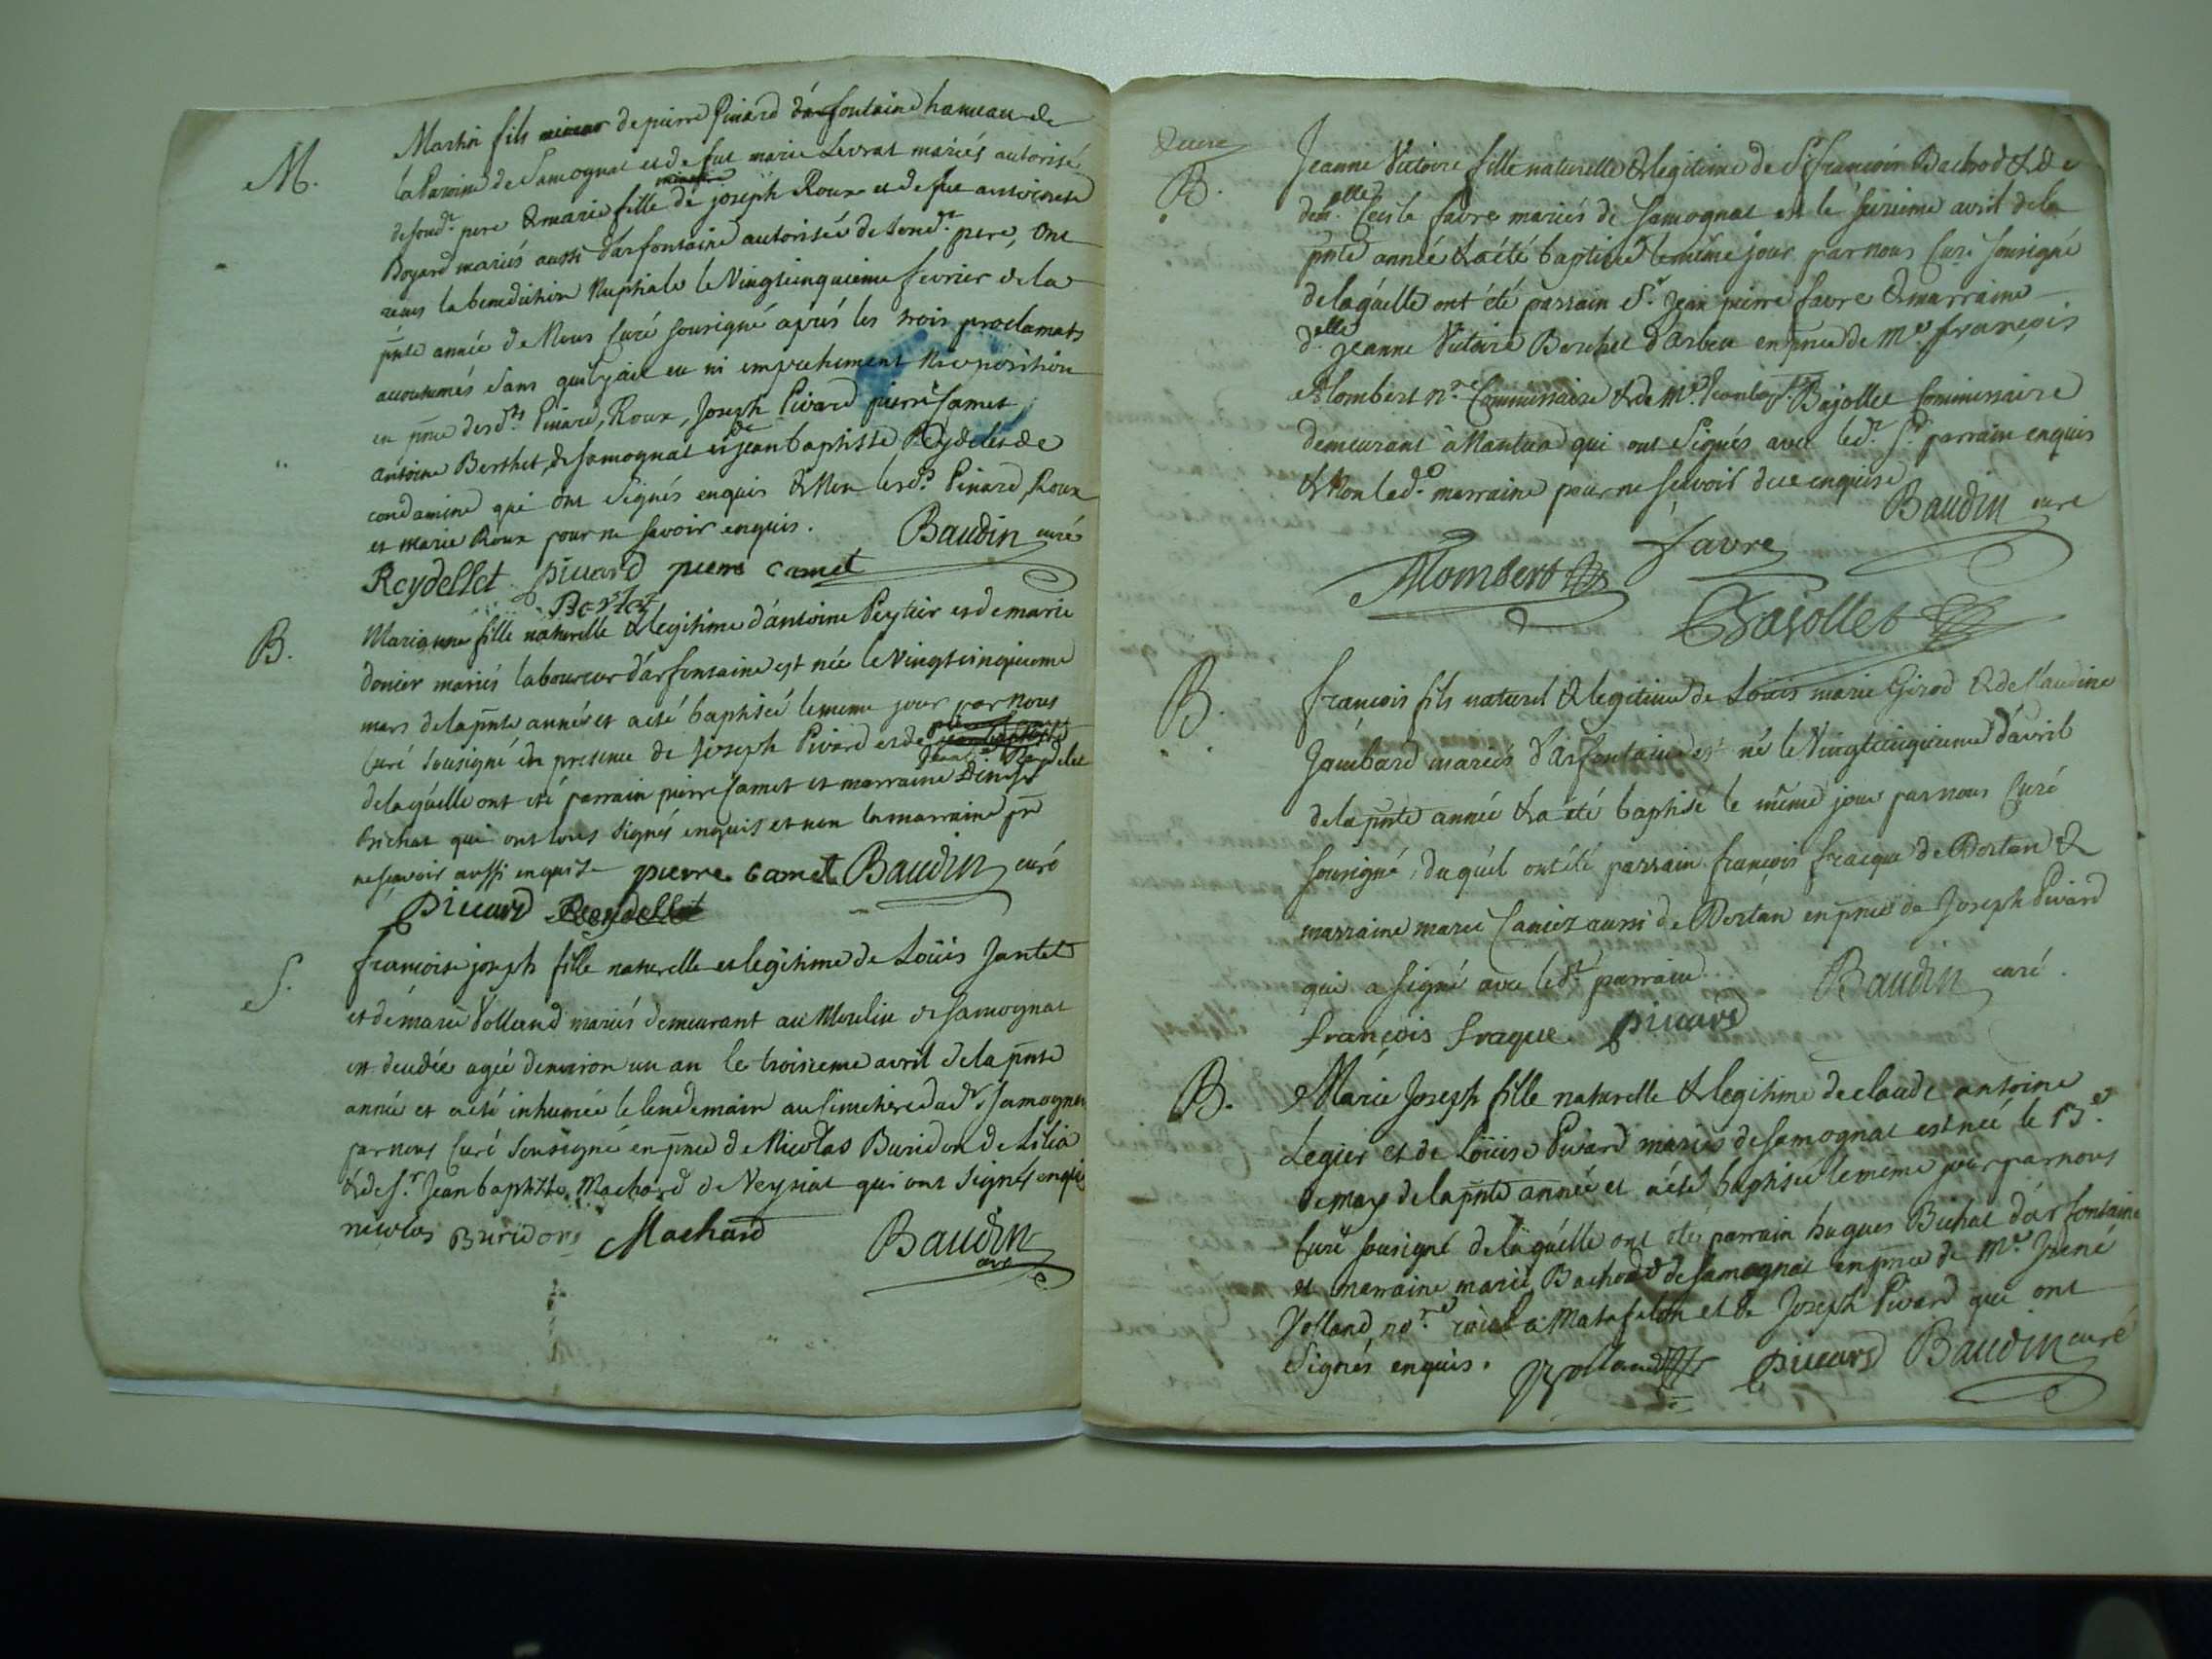 M.
Martin fils mineur de pierre Pivard d'arfontaine hameau de
la Paroisse de Samognat et de fut marie Levrat mariés autorisé
de sond.t pere & marie fille de joseph Roux et de fut antoinete
mineure
Boyard mariés aussi d'arfontaine autorisée de sond.t pere, ont
reçus la benediction Nuptiale le Vingtcinquieme fevrier de la
pnte année de Nous Curé sousigné aprés les trois proclamats
accoutumés sans quil y ait eu ni empechement Ni oposition
en pnce desd.ts Pivard, Roux, Joseph Pivard pierre Camet,
antoine Berthet, de samognat et de jean baptiste Reydelet de
condamine qui ont signés enquis & Non lesd.s Pivard, Roux
et marie Roux pour ne savoir enquis. Baudin curé
Reydellet pivard pierre camet
Bertet
B.
Marianne fille naturelle & legitime d'antoine Peytier et de marie
donier mariés laboureur d'arfontaine est née le Vingtcinquieme
mars de la pnte année et a eté baptisée le meme jour par nous
Curé sousigné en presence de joseph Pivard et de
jean Reydelet
de laquelle ont eté parrain pierre Camet et marraine Denise
Bichat qui ont tous signés enquis et non la marraine pr
ne scavoir aussi enquise pierre camet Baudin curé
pivard Reydellet
S.
françoise joseph fille naturelle et legitime de Loüis Jantet
et de marie Volland mariés demeurant au Moulin de samognat
est decedée agée denviron un an le troisieme avril de la pnte
année et a eté inhumée le lendemain au Cimetiere dud.t Samognat
par nous Curé sousigné en pnce de Nicolas Buridon de Lilia
& de S.r Jean baptiste Machard de Veyziat qui ont signés enquis
nicolas Buridon Machard Baudin
curé
B.
Jeanne Victoire fille naturelle & legitime de S.r françois Bachod & de
dem.elle Cecile favre mariés de Samognat est le seizieme avril de la
pnte année & a été baptisée le même jour par nous Curé sousigné
de laquelle ont été parrain S.r Jean pierre favre & marraine
d.elle Jeanne Victoire Berchet d'arbent en pnce de M.e françois
Mombert n.re Commissaire & de M.e Jean bapt. Bajollet Commissaire
demeurant à Nantua qui ont signés avec led.t S.r parrain enquis
& Non lad.e marraine pour ne scavoir de ce enquise
Baudin curé
Mombert favre
Bajollet
B.
françois fils naturel & legitime de Louis marie Girod & de Claudine
Jambard mariés d'arfontaine est né le Vingtcinquieme d'avril
de la pnte année & a été baptisé le même jour par nous Curé
sousigné, duquel ont été parrain françois fracque de Dortan &
marraine marie Caniez aussi de Dortan en pnce de Joseph Pivard
qui a signé avec led.t parrain. Baudin curé.
françois fraque pivard
B.
Marie Joseph fille naturelle & legitime de claude antoine
Legier et de Loüise Pivard mariés de samognat est née le 13.e
de may de la pnte année et a été baptisée le meme jour par nous
Curé sousigné de laquelle ont eté parrain hugues Bichat d'arfontaine
et marraine marie Bachod de samognat en pnce de M.e Irené
Volland, no.re royal à Matafelon et de Joseph Pivard qui ont
signés enquis. Volland pivard Baudin curé